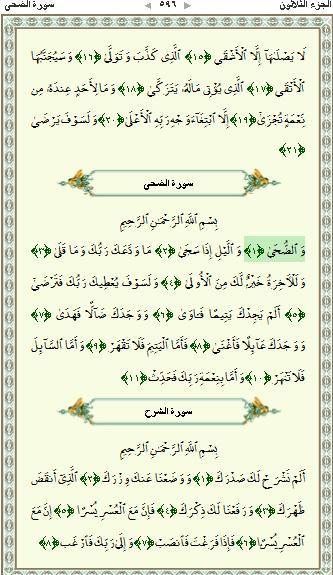 الجزء الثلاثون ٥٩٦ سورة الضحى
لَا يَصْلَىٰهَآ إِلَّا ٱلْأَشْقَى ﴿١٥﴾ ٱلَّذِى كَذَّبَ وَتَوَلَّىٰ ﴿١٦﴾ وَسَيُجَنَّبُهَا
ٱلْأَتْقَى ﴿١٧﴾ ٱلَّذِى يُؤْتِى مَالَهُۥ يَتَزَكَّىٰ ﴿١٨﴾ وَمَا لِأَحَدٍ عِندَهُۥ مِن
نِّعْمَةٍ تُجْزَىٰٓ ﴿١٩﴾ إِلَّا ٱبْتِغَآءَ وَجْهِ رَبِّهِ ٱلْأَعْلَىٰ ﴿٢٠﴾ وَلَسَوْفَ يَرْضَىٰ
﴿٢١﴾
سورة الضحى
بِسْمِ ٱللَّهِ ٱلرَّحْمَٰنِ ٱلرَّحِيمِ
وَٱلضُّحَىٰ ﴿١﴾ وَٱلَّيْلِ إِذَا سَجَىٰ ﴿٢﴾ مَا وَدَّعَكَ رَبُّكَ وَمَا قَلَىٰ ﴿٣﴾
وَلَلْءَاخِرَةُ خَيْرٌ لَّكَ مِنَ ٱلْأُولَىٰ ﴿٤﴾ وَلَسَوْفَ يُعْطِيكَ رَبُّكَ فَتَرْضَىٰٓ
﴿٥﴾ أَلَمْ يَجِدْكَ يَتِيمًا فَـَٔاوَىٰ ﴿٦﴾ وَوَجَدَكَ ضَآلًّا فَهَدَىٰ ﴿٧﴾
وَوَجَدَكَ عَآئِلًا فَأَغْنَىٰ ﴿٨﴾ فَأَمَّا ٱلْيَتِيمَ فَلَا تَقْهَرْ ﴿٩﴾ وَأَمَّا ٱلسَّآئِلَ
فَلَا تَنْهَرْ ﴿١٠﴾ وَأَمَّا بِنِعْمَةِ رَبِّكَ فَحَدِّثْ ﴿١١﴾
سورة الشرح
بِسْمِ ٱللَّهِ ٱلرَّحْمَٰنِ ٱلرَّحِيمِ
أَلَمْ نَشْرَحْ لَكَ صَدْرَكَ ﴿١﴾ وَوَضَعْنَا عَنكَ وِزْرَكَ ﴿٢﴾ ٱلَّذِىٓ أَنقَضَ
ظَهْرَكَ ﴿٣﴾ وَرَفَعْنَا لَكَ ذِكْرَكَ ﴿٤﴾ فَإِنَّ مَعَ ٱلْعُسْرِ يُسْرًا ﴿٥﴾ إِنَّ مَعَ
ٱلْعُسْرِ يُسْرًا ﴿٦﴾ فَإِذَا فَرَغْتَ فَٱنصَبْ ﴿٧﴾ وَإِلَىٰ رَبِّكَ فَٱرْغَب ﴿٨﴾